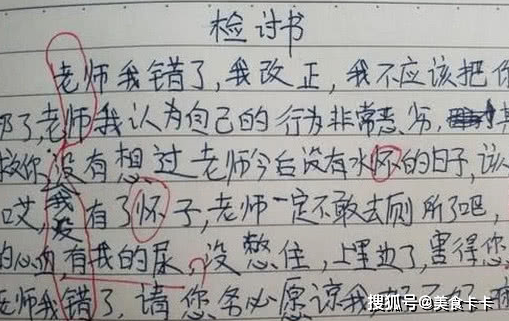 检讨书
老师我错了,我改正,我不应该把你
了,老师我认为自己的行为非常恶劣,
你没有想过老师今后没有水怀的日子,该
哎,我爱有了怀子,老师一定不敢去厕所了吧,
的心血有我的尿,没憋住,上里边了,害得您
老师我错了,请您务必愿谅我
搜狐号@美食卡卡